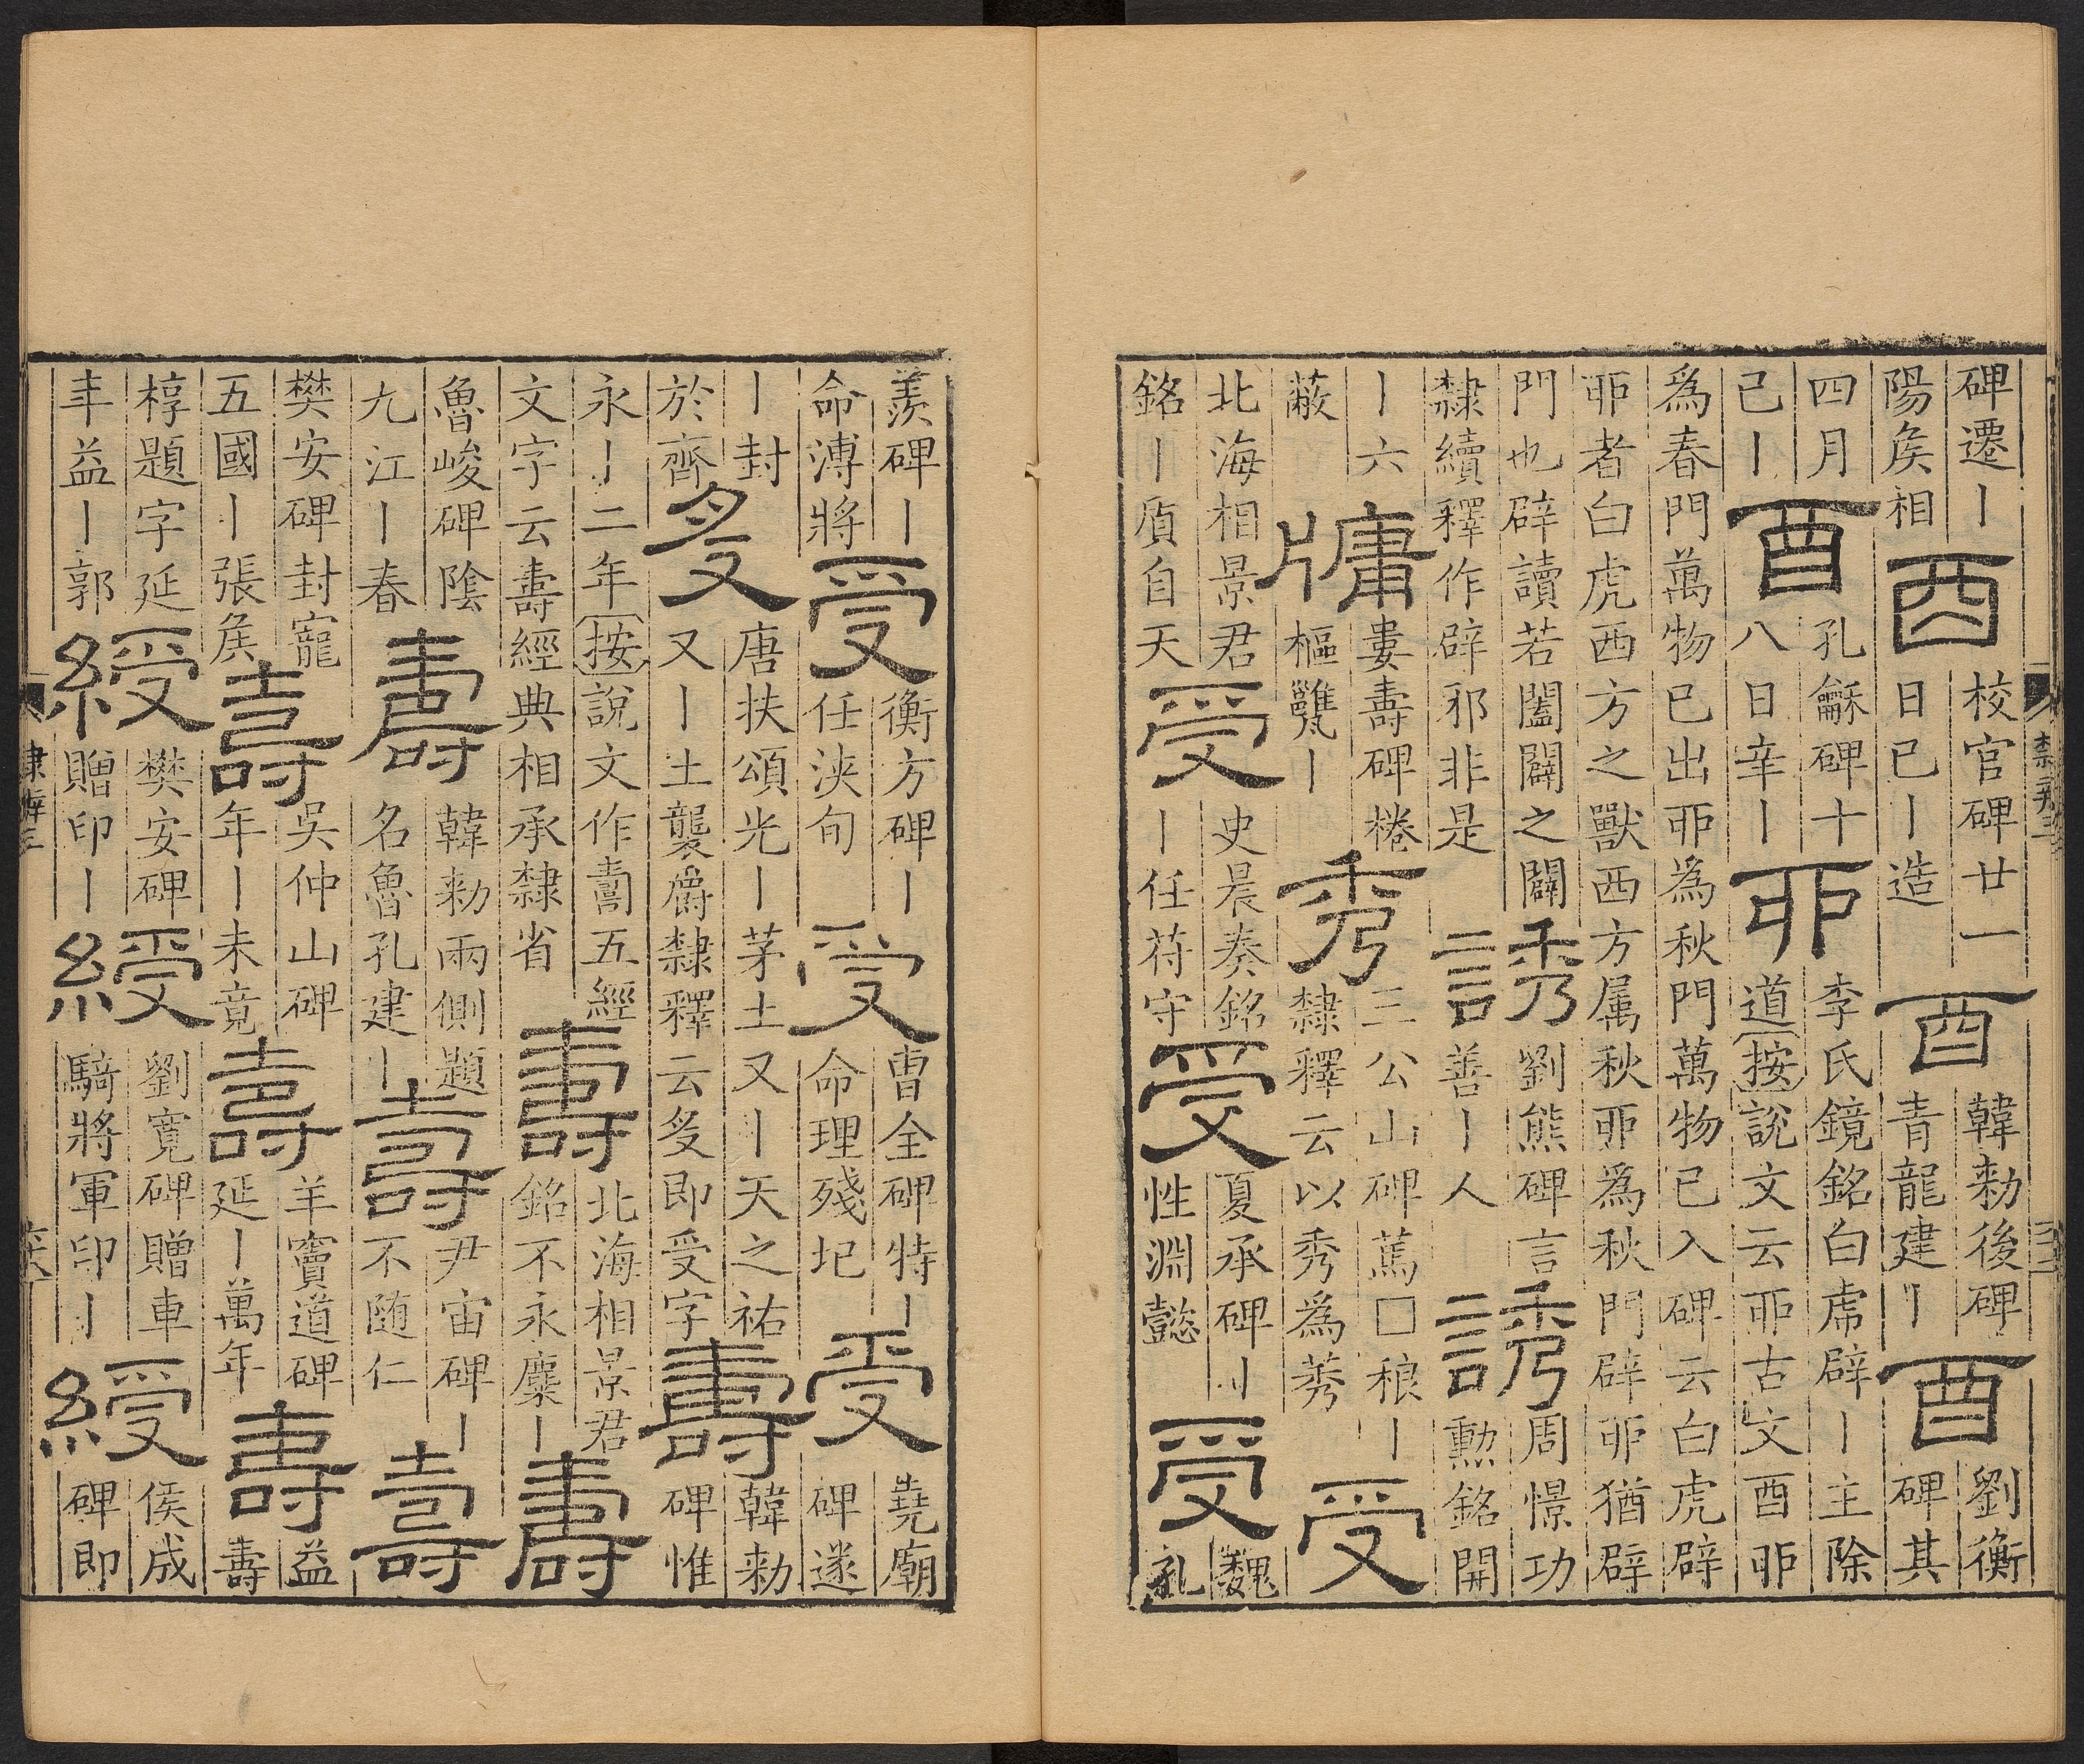 碑遷丨陽矦相酉校官碑廿一日已丨造酉韓勑後碑青龍建丨酉劉衡碑其
四月已丨酉孔龢碑十八日辛丨丣李氏鏡銘白虎辟丨主除道按說文云丣古文酉丣
爲春門萬物已出丣爲秋門萬物已入碑云白虎辟丣者白虎西方之獸西方属秋丣爲秋門辟丣猶辟
門也辟讀若闔闢之闢隸續釋作辟邪非是誘劉熊碑言善丨人誘周憬功勲銘開
丨六蔽牗婁壽碑棬樞甕丨秀三公山碑蔿□稂丨隸釋云以秀爲莠受
北海相景君銘丨㡳自天受史晨奏銘丨任苻守受夏承碑丨性淵懿受魏孔
羨碑丨命溥將受衡方碑丨任浹旬受曹全碑特丨命理殘圮受堯廟碑遂
丨封於齊受唐扶頌光丨茅土又丨天之祐又丨土襲爵隸釋云受即受字壽韓勑碑惟
永丨二年按說文作𠷎五經文字云壽經典相承隸省壽北海相景君銘不永麋丨壽
魯峻碑陰九江丨春壽韓勑兩側題名魯孔建丨壽尹宙碑丨不随仁壽
樊安碑封寵五國丨張矦壽吳仲山碑年丨未竟壽羊竇道碑延丨萬年壽益壽
椁題字延年益丨郭綬樊安碑贈印丨綬劉寬碑贈車騎將軍印丨綬侯成碑即